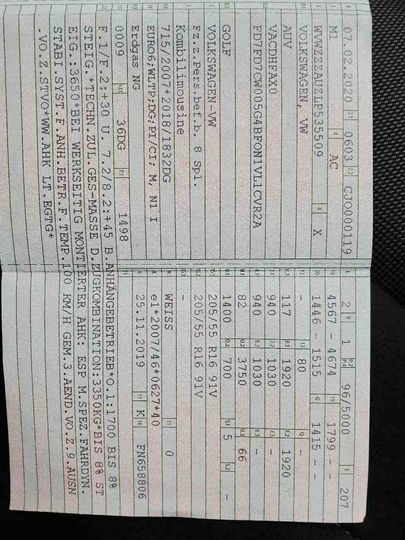 07.02.2020 0603 CJO000119
M1 AC
WVWZZZAUZLP535509 X
VOLKSWAGEN, VW
AUV
VACDHFAX0
FD7FD7CW005G4BFON1VL1CVR2A
GOLF
VOLKSWAGEN-VW
Fz.z.Pers.bef.b. 8 Spl.
Kombilimousine
715/2007*2018/1832DG
EURO6;WLTP;DG;PI/CI; M, N1 I
Erdgas NG
0009 36DG 1498
2 1 96/5000 207
4567 - 4674 1799 - -
1446 - 1515 1415 -
- 80 -
117 1920 1920
940 1030 -
940 1030 -
82 3750 66
1400 700 5 -
205/55 R16 91V
205/55 R16 91V
-
WEISS 0
e1*2007/46*0627*40
25.11.2019 K FN658806
F.1/F.2:+30 U. 7.2/8.2:+45 B.ANHÄNGEBETRIEB*O.1:1700 BIS 8%
STEIG.*TECHN.ZUL.GES-MASSE D.ZUGKOMBINATION:3350KG*BIS 8% ST
EIG.:3650*BEI WERKSEITIG MONTIERTER AHK: ESP M.SPEZ.FAHRDYN.
STAB.-SYST.F.ANH.BETR.F.TEMP.100 KM/H GEM.3.AEND.VO.Z.9.AUSN
.VO.Z.STVO*WW.AHK LT.EGTG*